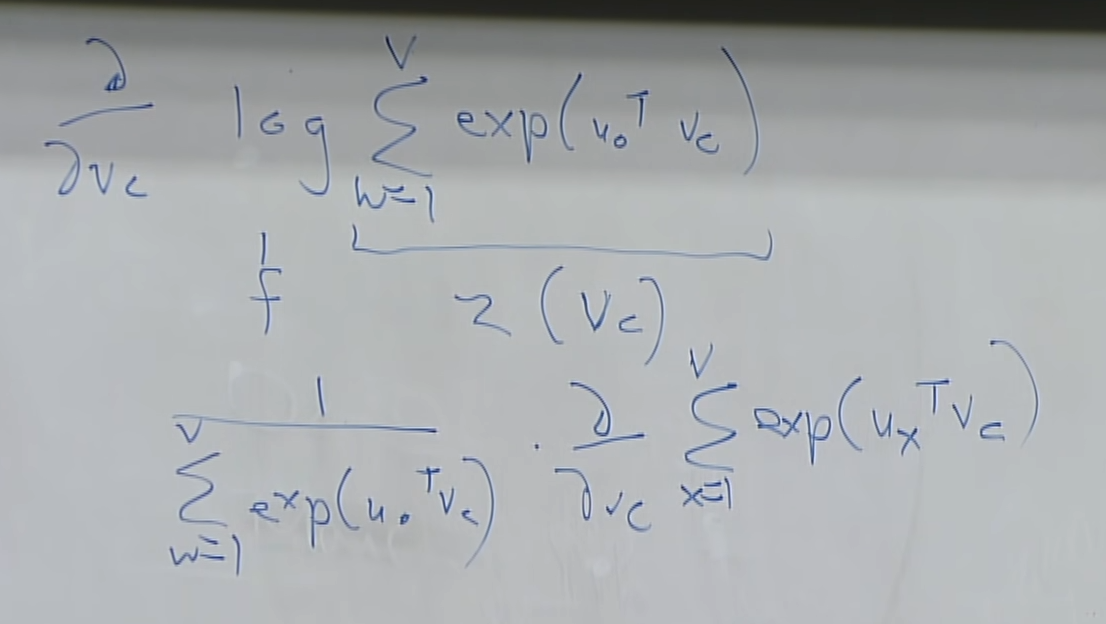 ∂/∂v_c log Σ_{w=1}^{V} exp(u_o^T v_c)
1/f z(v_c)
1/(Σ_{w=1}^{V} exp(u_o^T v_c)) · ∂/∂v_c Σ_{x=1}^{V} exp(u_x^T v_c)